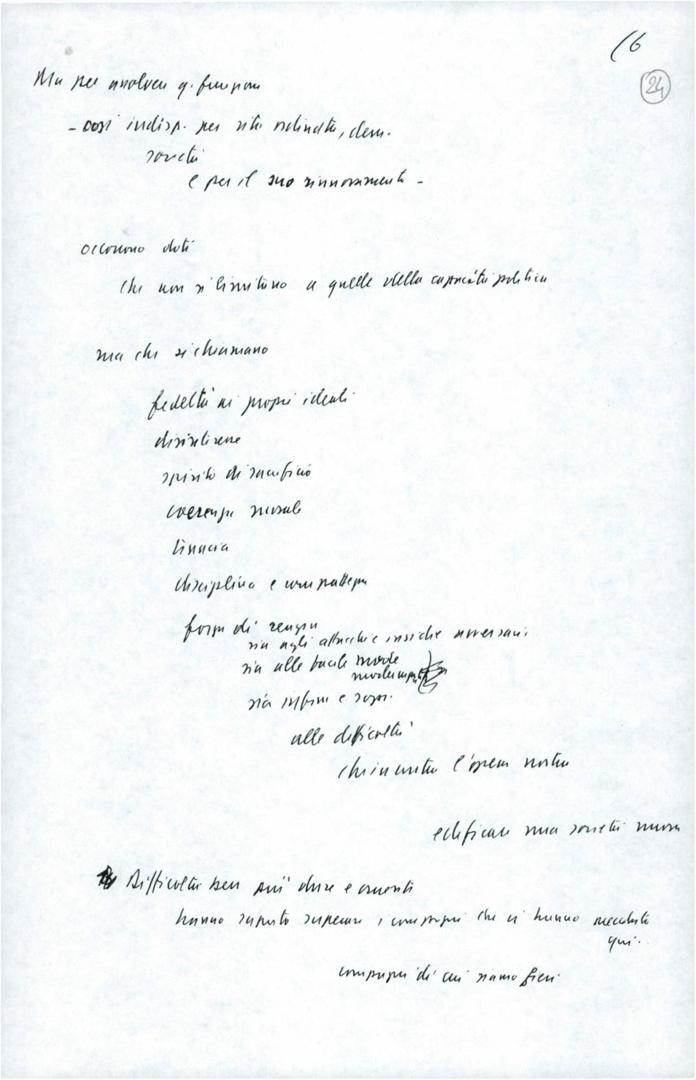 16
24
Ma per assolvere q. funzioni
- così indisp. per vita ordinata, dem.
società
e per il suo rinnovamento -
occorrono doti
che non si limitano a quelle della capacità politica
ma che si chiamano
fedeltà ai propri ideali
disinteresse
spirito di sacrificio
coerenza morale
tenacia
disciplina e compattezza
forza di
sia agli attacchi e insidie avversari
sia alle facili mode
sia infine e sopr.
alle difficoltà
che incontra l'opera nostra
edificare una società nuova
Difficoltà ben più dure e cruenti
hanno saputo superare i compagni che ci hanno preceduto
qui.
compagni di cui siamo fieri